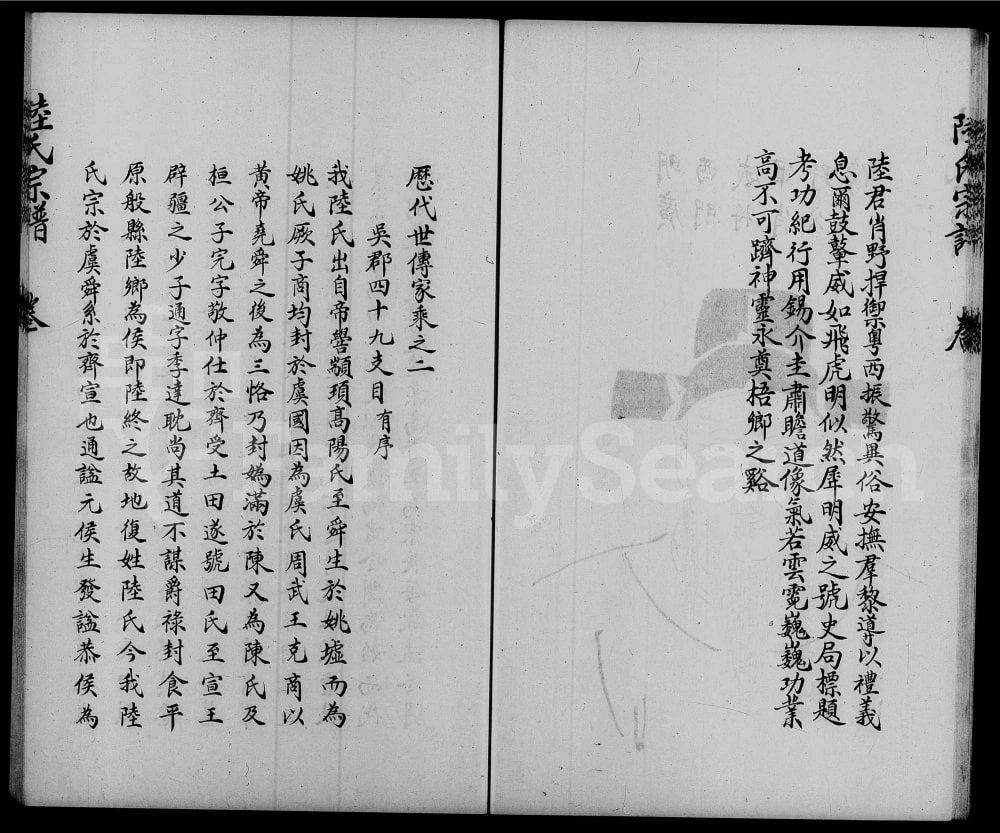 陸君肖野捍禦粵西振驚異俗安撫羣黎導以禮義
息爾鼓鼙威如飛虎明似然犀明威之號史局標題
考功紀行用錫介圭肅瞻道像氣若雲霓巍巍功業
高不可躋神靈永奠梧鄉之谿
歷代世傳家乘之二
吳郡四十九支目有序
我陸氏出自帝嚳顓頊高陽氏至舜生於姚墟而為
姚氏厥子商均封於虞國因為虞氏周武王克商以
黃帝堯舜之後為三恪乃封媯滿於陳又為陳氏及
桓公子完字敬仲仕於齊受土田遂號田氏至宣王
辟疆之少子通字季達耽尚其道不謀爵祿封食平
原般縣陸鄉為侯即陸終之故地復姓陸氏今我陸
氏宗於虞舜系於齊宣也通諡元侯生發諡恭侯為
陸氏宗譜 卷
FamilySearch